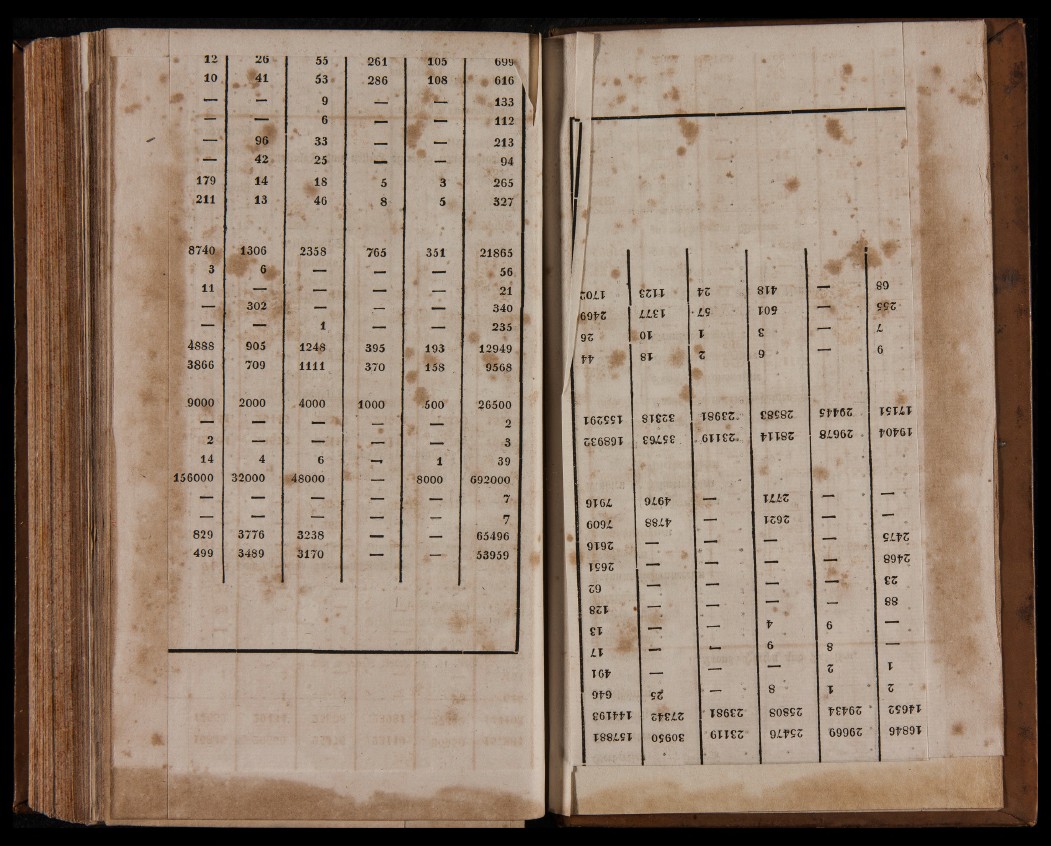 12 26 55 261 105 699
10 41 53 286 108 616
— — 9 — — 133
— — 6 — — 112
— 96 33 — — 213
— 42 25 — — 94
179 14 18 5 3 265
211 13 46 8 5 327
8740 1306 2358 765 351 21865
3 6 — — — 56
11 — — — — 21
— 302 — — — 340
— — 1 — — 235
4888 905 1248 395 193 12949
3866 709 1111 370 158 9568
9000 2000 4000 1000 500 26500
— — — — — 2
2 — — — — 3
14 4 6 — 1 39
156000 32000 48000 — 8000 692000
— — — — — 7
— — — — — 7
829 3776 3238 — — 65496
499 3489 3170 — — 53959
16846 29669 25476 23119 30950 157881
14652 29434 25808 23981 27342 144193
2 1 8 — 25 646
1 2 — — — 491
— 8 9 — — 17
— 9 4 — — 13
88 — — — — 128
23 — — — — 62
2468 — — — — 2651
2475 — — — — 2616
— — 2621 — 4788 7609
— — 2771 — 4976 7916
19404 29678 28114 23119 35763 168932
17151 29445 28583 23981 32318 155291
9 — 6 2 18 44
7 — 3 1 10 26
255 — 501 57 1377 2469
68 — 418 24 1123 1702